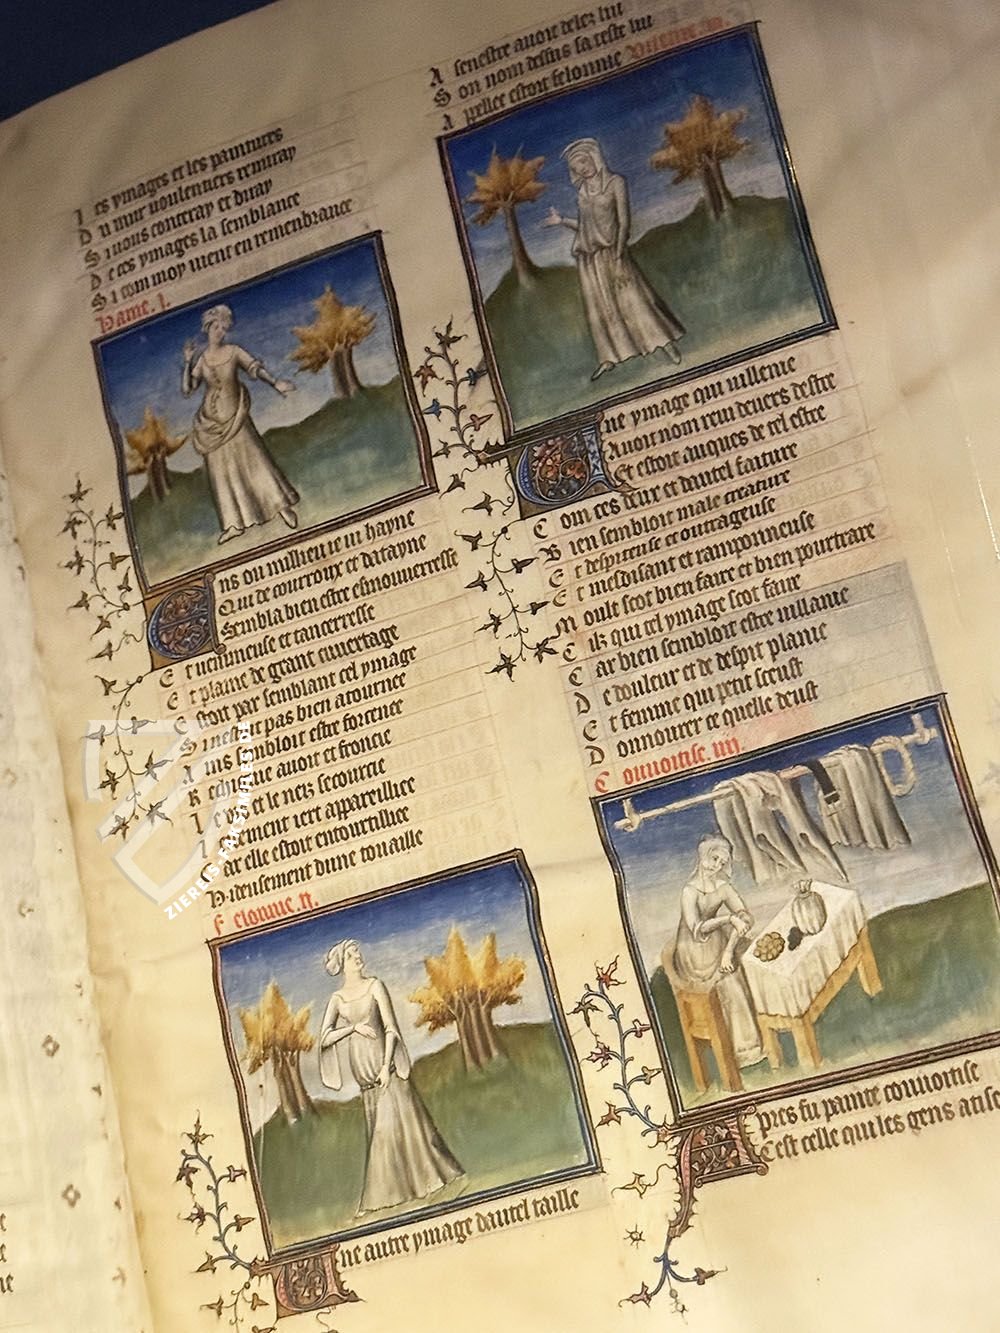 Les ymages et les paintures
Du mur voulentiers remiray
Si vous conteray et diray
De ces ymages la semblance
Si com moy vient en remenbrance
Hame .i.
Ens ou millieu je vi hayne
Qui de courroux et datayne
Sembla bien estre esmouverresse
Et venimeuse et tancerresse
Et plaine de grant cuvertage
Estoit par semblant cel ymage
Si nestoit pas bien atournee
Ains sembloit estre forcenee
Rechignie avoit et froncie
Le vis et le neiz secourcie
ement iert appareilliee
ar elle estoit entourtilliee
Hideusement dune touaille
Felonnie .ii.
Une autre ymage dautel taille
A senestre avoit delez lui
Son nom dessus sa teste lui
Apellee estoit felonnie
Une ymage qui villenie
Avoit nom revi devers destre
Et estoit auques de tel estre
Com ces deux et dautel faiture
Bien sembloit male creature
Et despiteuse et outrageuse
Et mesdisant et ramponneuse
Moult scot bien faire et bien pourtraire
Cilz qui tel ymage scot faire
Car bien sembloit estre villanie
De douleur et de despit plaine
Et femme qui petit sceust
Donnourer ce quelle deust
Couvoitise .iiii.
Apres fu painte couvoitise
Cest celle qui les gens atise
ZIEREIS-FAKSIMILES.DE